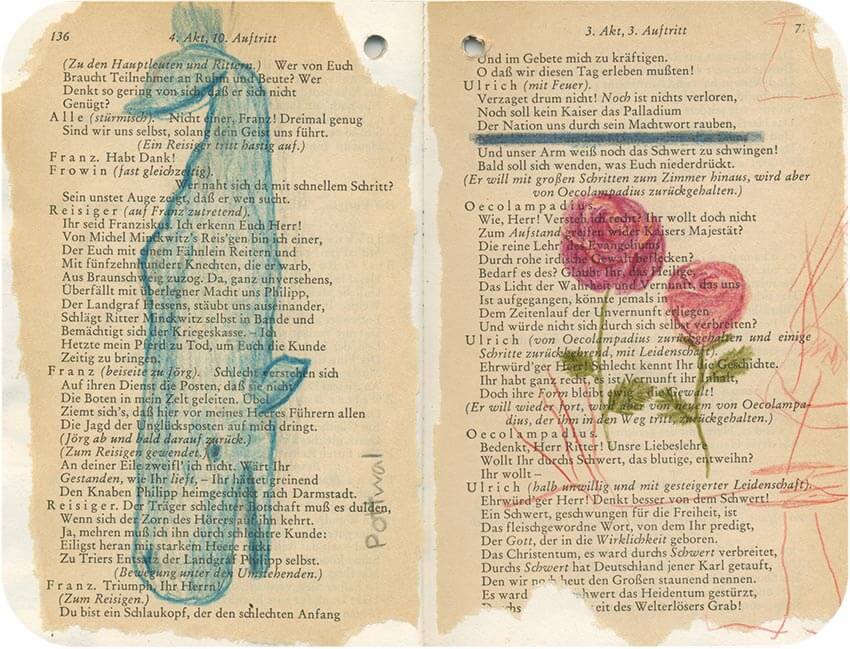 136 4. Akt, 10. Auftritt
(Zu den Hauptleuten und Rittern.) Wer von Euch
Braucht Teilnehmer an Ruhm und Beute? Wer
Denkt so gering von sich, daß er sich nicht
Genügt?
Alle (stürmisch). Nicht einer, Franz! Dreimal genug
Sind wir uns selbst, solang dein Geist uns führt.
(Ein Reisiger tritt hastig auf.)
Franz. Habt Dank!
Frowin (fast gleichzeitig).
Wer naht sich da mit schnellem Schritt?
Sein unstet Auge zeigt, daß er wen sucht.
Reisiger (auf Franz zutretend).
Ihr seid Franziskus, Ich erkenn Euch Herr!
Von Michel Minckwitz's Reis'gen bin ich einer,
Der Euch mit einem Fähnlein Reitern und
Mit fünfzehnhundert Knechten, die er warb,
Aus Braunschweig zuzog. Da, ganz unversehens,
Überfällt mit überlegner Macht uns Philipp,
Der Landgraf Hessens, stäubt uns auseinander,
Schlägt Ritter Minckwitz selbst in Bande und
Bemächtigt sich der Kriegeskasse. – Ich
Hetzte mein Pferd zu Tod, um Euch die Kunde
Zeitig zu bringen.
Franz (beiseite zu Jörg). Schlecht verstehen sich
Auf ihren Dienst die Posten, daß sie nicht
Die Boten in mein Zelt geleiten. Übel
Ziemt sich's, daß hier vor meines Heeres Führern allen
Die Jagd der Unglücksposten auf mich dringt.
(Jörg ab und bald darauf zurück.)
(Zum Reisigen gewendet.)
An deiner Eile zweifl' ich nicht. Wärt Ihr
Gestanden, wie Ihr lieft, – Ihr hättet greinend
Den Knaben Philipp heimgeschickt nach Darmstadt.
Reisiger. Der Träger schlechter Botschaft muß es dulden,
Wenn sich der Zorn des Hörers auf ihn kehrt.
Ja, mehren muß ich ihn durch schlechtre Kunde:
Eiligst heran mit starkem Heere rückt
Zu Triers Entsatz der Landgraf Philipp selbst.
(Bewegung unter den Umstehenden.)
Franz. Triumph, Ihr Herrn!
(Zum Reisigen.)
Du bist ein Schlaukopf, der den schlechten Anfang
Pottwal
3. Akt, 3. Auftritt 7
Und im Gebete mich zu kräftigen.
O daß wir diesen Tag erleben mußten!
Ulrich (mit Feuer).
Verzaget drum nicht! Noch ist nichts verloren,
Noch soll kein Kaiser das Palladium
Der Nation uns durch sein Machtwort rauben,
Und unser Arm weiß noch das Schwert zu schwingen!
Bald soll sich wenden, was Euch niederdrückt.
(Er will mit großen Schritten zum Zimmer hinaus, wird aber
von Oecolampadius zurückgehalten.)
Oecolampadius.
Wie, Herr! Versteh ich recht? Ihr wollt doch nicht
Zum Aufstand greifen wider Kaisers Majestät?
Die reine Lehr' des Evangeliums
Durch rohe irdische Gewalt beflecken?
Bedarf es des? Glaubt Ihr, das Heilige,
Das Licht der Wahrheit und Vernunft, das uns
Ist aufgegangen, könnte jemals in
Dem Zeitenlauf der Unvernunft erliegen
Und würde nicht sich durch sich selbst verbreiten?
Ulrich (von Oecolampadius zurückgehalten und einige
Schritte zurückgehend, mit Leidenschaft).
Ehrwürd'ger Herr! Schlecht kennt Ihr die Geschichte.
Ihr habt ganz recht, es ist Vernunft ihr Inhalt,
Doch ihre Form bleibt ewig – die Gewalt!
(Er will wieder fort, wird aber von neuem von Oecolampa-
dius, der ihm in den Weg tritt, zurückgehalten.)
Oecolampadius.
Bedenkt, Herr Ritter! Unsre Liebeslehre
Wollt Ihr durchs Schwert, das blutige, entweihn?
Ihr wollt –
Ulrich (halb unwillig und mit gesteigerter Leidenschaft).
Ehrwürd'ger Herr! Denkt besser von dem Schwert!
Ein Schwert, geschwungen für die Freiheit, ist
Das fleischgewordne Wort, von dem Ihr predigt,
Der Gott, der in die Wirklichkeit geboren.
Das Christentum, es ward durchs Schwert verbreitet,
Durchs Schwert hat Deutschland jener Karl getauft,
Den wir noch heut den Großen staunend nennen.
Es ward schwert das Heidentum gestürzt,
eit des Welterlösers Grab!